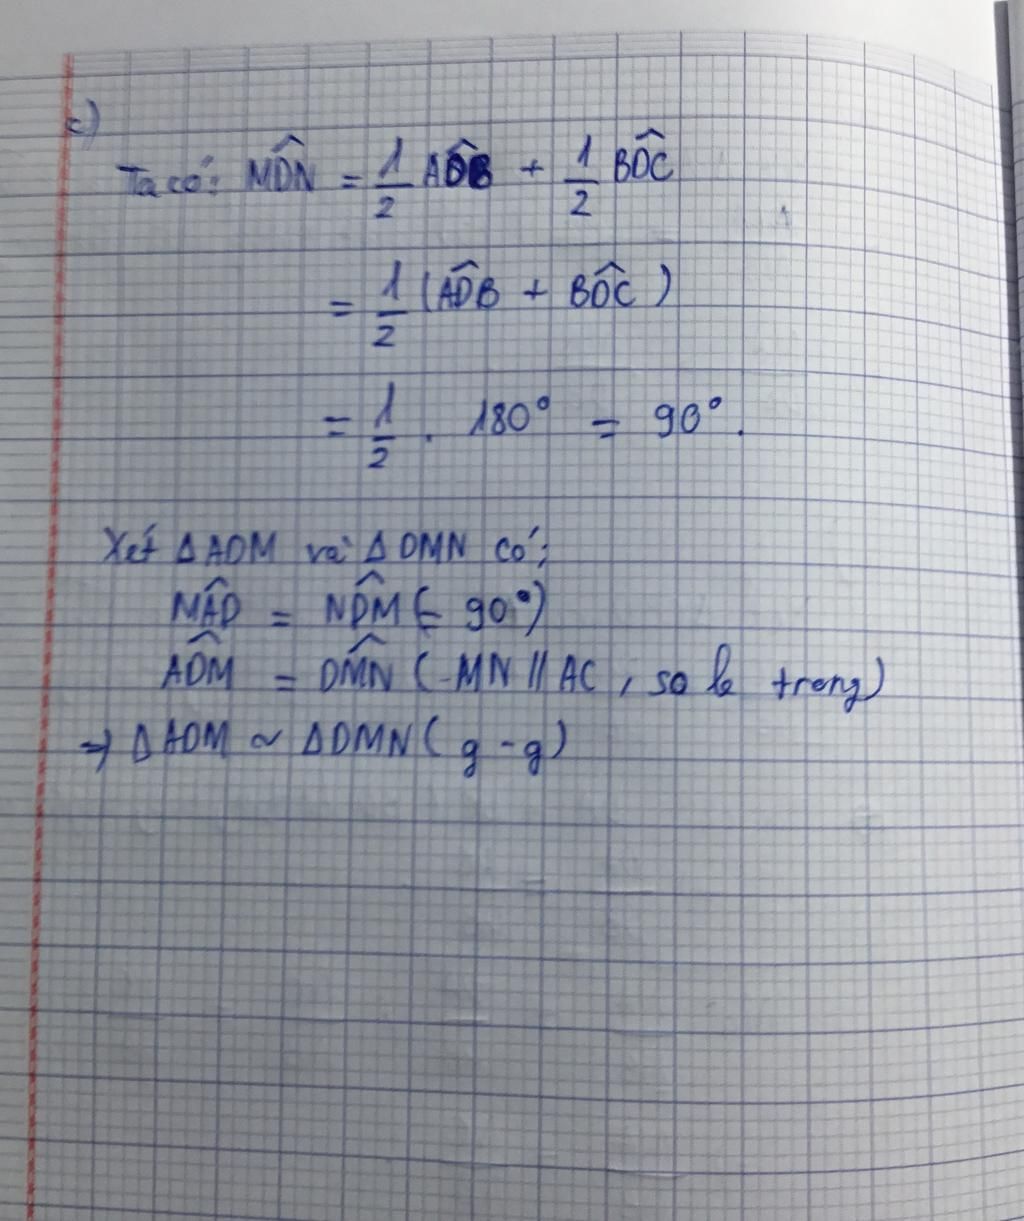 c)
Ta có: MD̂N = 1/2 AD̂B + 1/2 BD̂C
= 1/2 (AD̂B + BD̂C)
= 1/2 . 180° = 90°.
Xét ΔADM và ΔDMN có:
MÂD = ND̂M (= 90°)
AD̂M = DM̂N (MN // AC, so le trong)
=> ΔADM ~ ΔDMN (g - g)